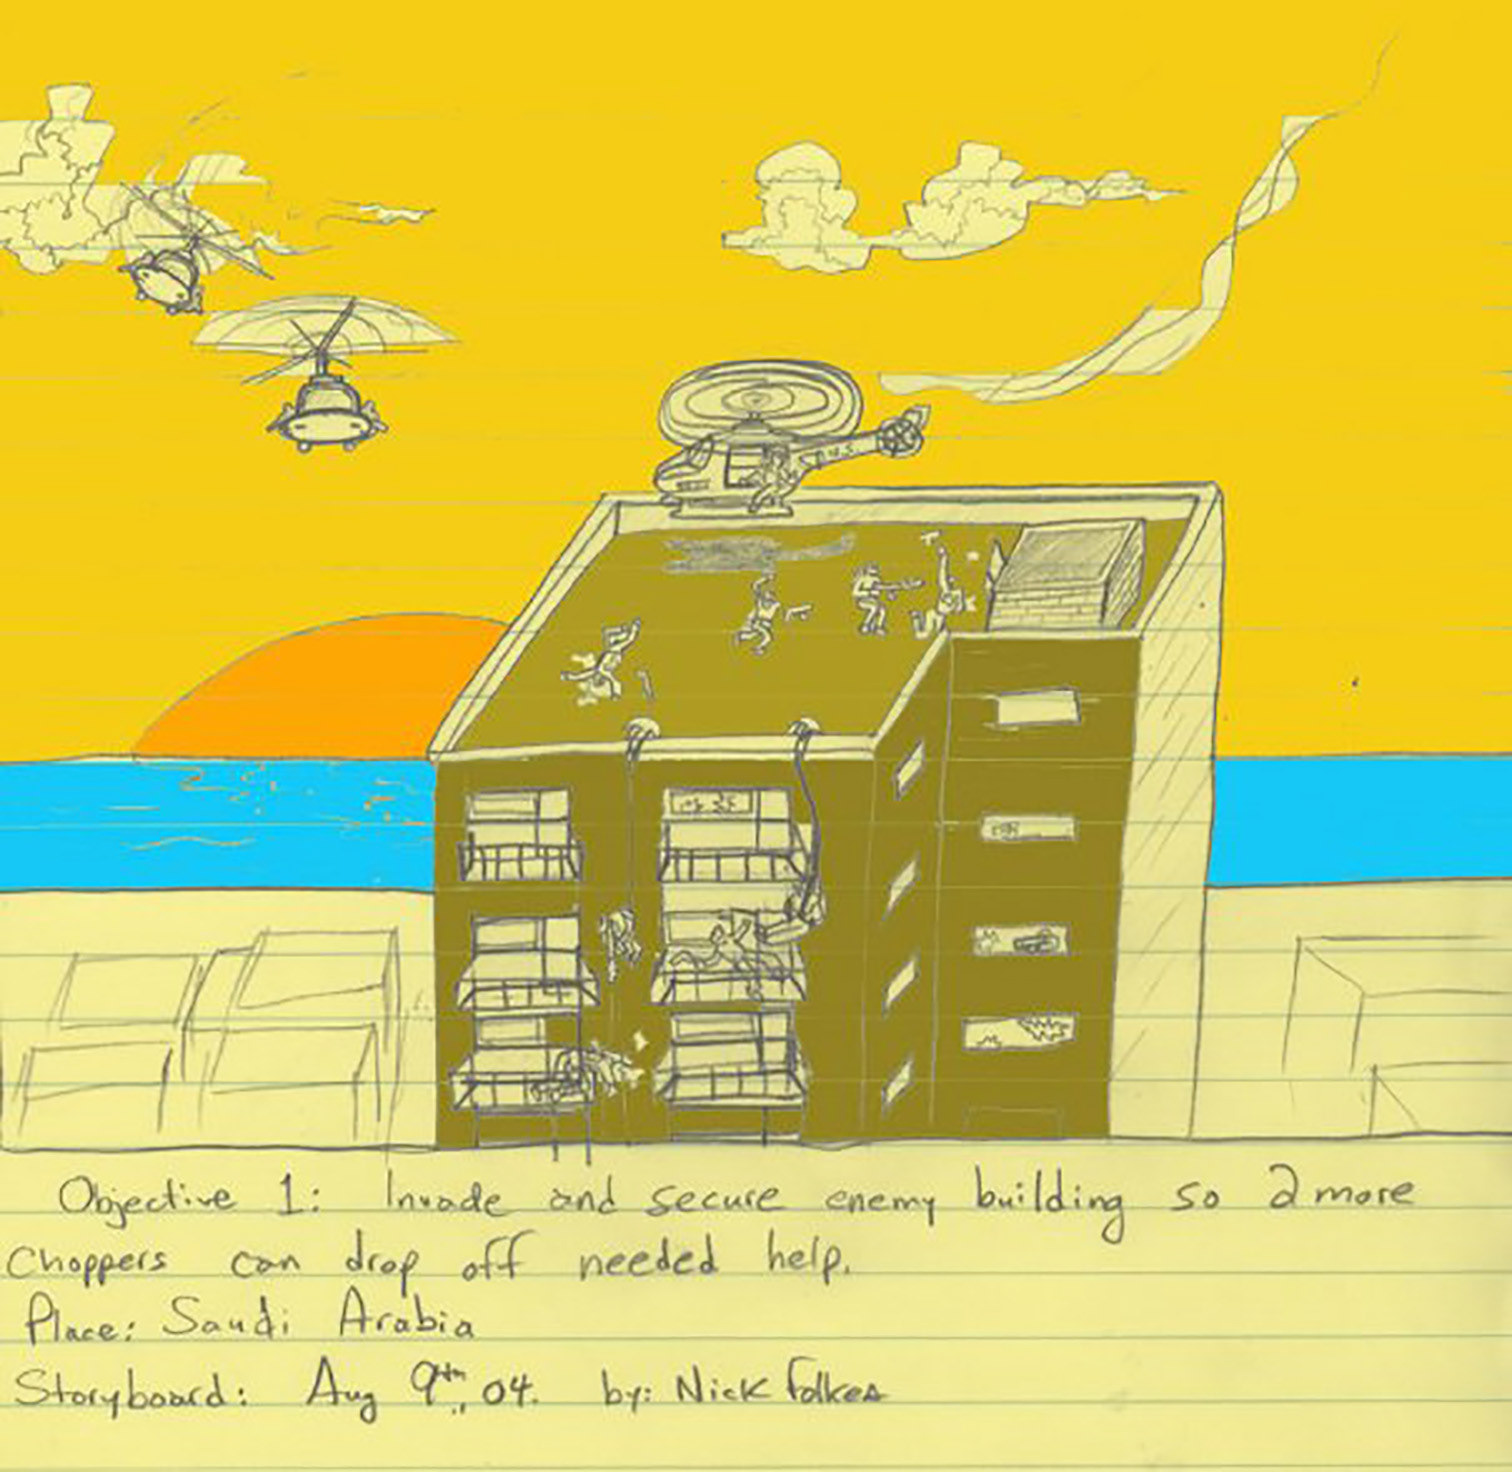 U.S
Objective 1: Invade and secure enemy building so 2 more
Choppers can drop off needed help.
Place: Saudi Arabia
Storyboard: Aug 9th, 04. by: Nick Folkes